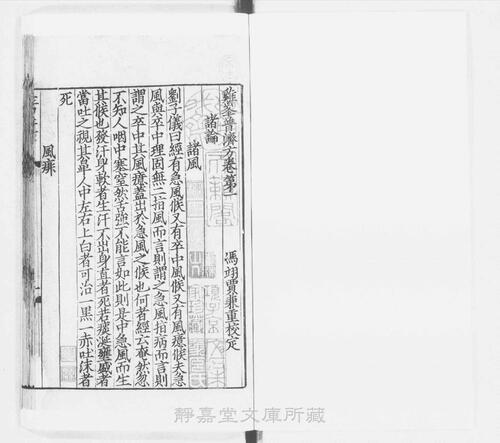 雞峯普濟方卷第一
馮翊賈兼重校定
諸論
諸風
劉子儀曰經有急風候又有卒中風候又有風癔候夫急
風與卒中理固無二指風而言則謂之急風指病而言則
謂之卒中其風癔蓋出於急風之候也何者經云奄然忽
不知人咽中塞窒然舌強不能言如此則是中急風而生
其候也發汗身軟者生汗不出身直者死若痰涎壅盛者
當吐之視其鼻人中左右上白者可治一黑一赤吐沫者
死
風痱
靜嘉堂文庫所藏